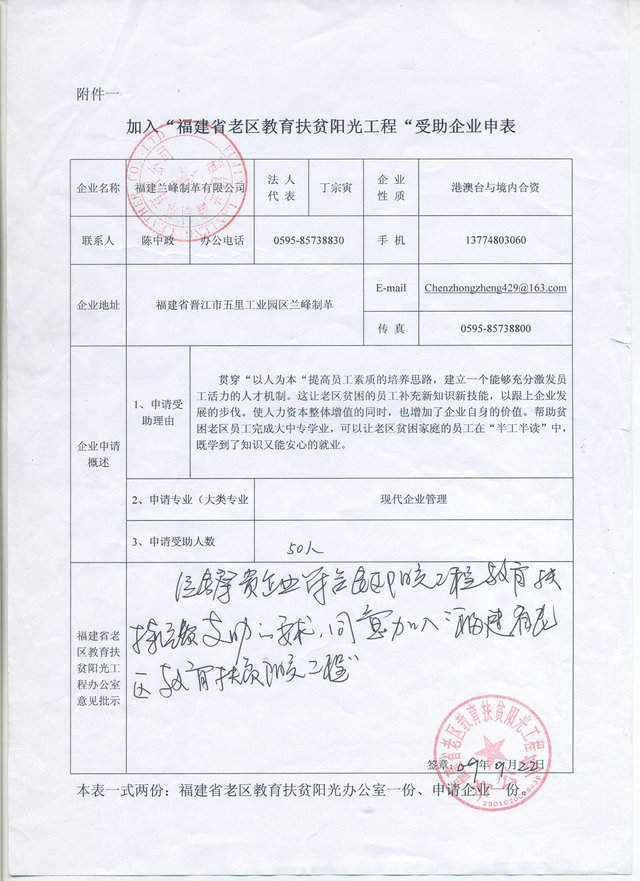 附件一
加入“福建省老区教育扶贫阳光工程“受助企业申表
企业名称 福建兰峰制革有限公司 法人代表 丁宗寅 企业性质 港澳台与境内合资
联系人 陈中政 办公电话 0595-85738830 手机 13774803060
企业地址 福建省晋江市五里工业园区兰峰制革 E-mail Chenzhongzheng429@163.com
传真 0595-85738800
企业申请概述
1、申请受助理由
贯穿“以人为本“提高员工素质的培养思路，建立一个能够充分激发员
工活力的人才机制。这让老区贫困的员工补充新知识新技能，以跟上企业发
展的步伐。使人力资本整体增值的同时，也增加了企业自身的价值。帮助贫
困老区员工完成大中专学业，可以让老区贫困家庭的员工在“半工半读”中，
既学到了知识又能安心的就业。
2、申请专业（大类专业 现代企业管理
3、申请受助人数 50人
福建省老区教育扶贫阳光工程办公室意见批示
企业符合 阳光工程教育扶
要求，同意加入“福建省老
区教育扶贫阳光工程”
签章：09年9月22日
福建省老区教育扶贫阳光工程
本表一式两份：福建省老区教育扶贫阳光办公室一份、申请企业一份。